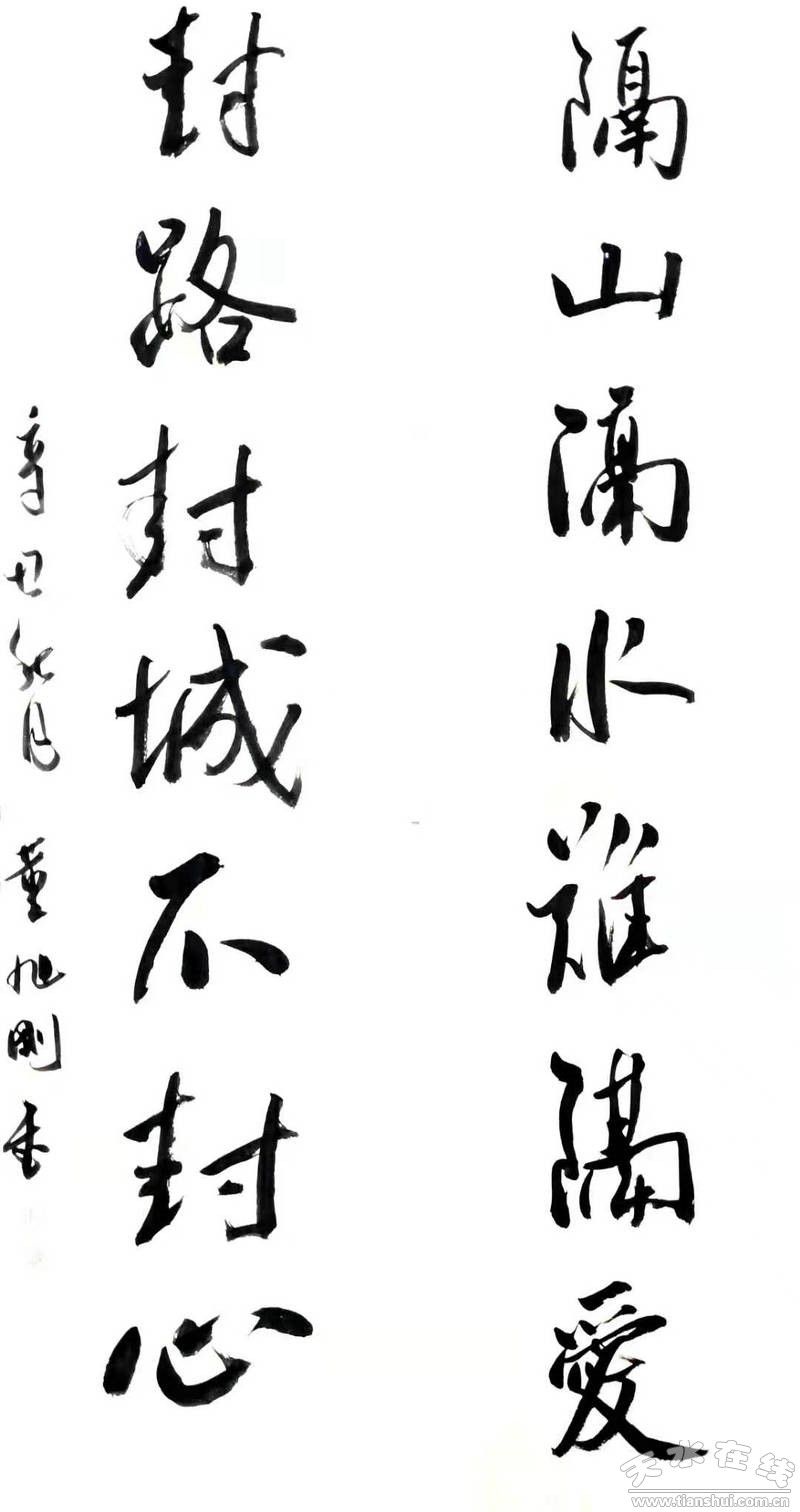 隔山隔水難隔愛
封路封城不封心
辛丑秋月 董旭剛書
天水在线
www.tianshui.com.cn